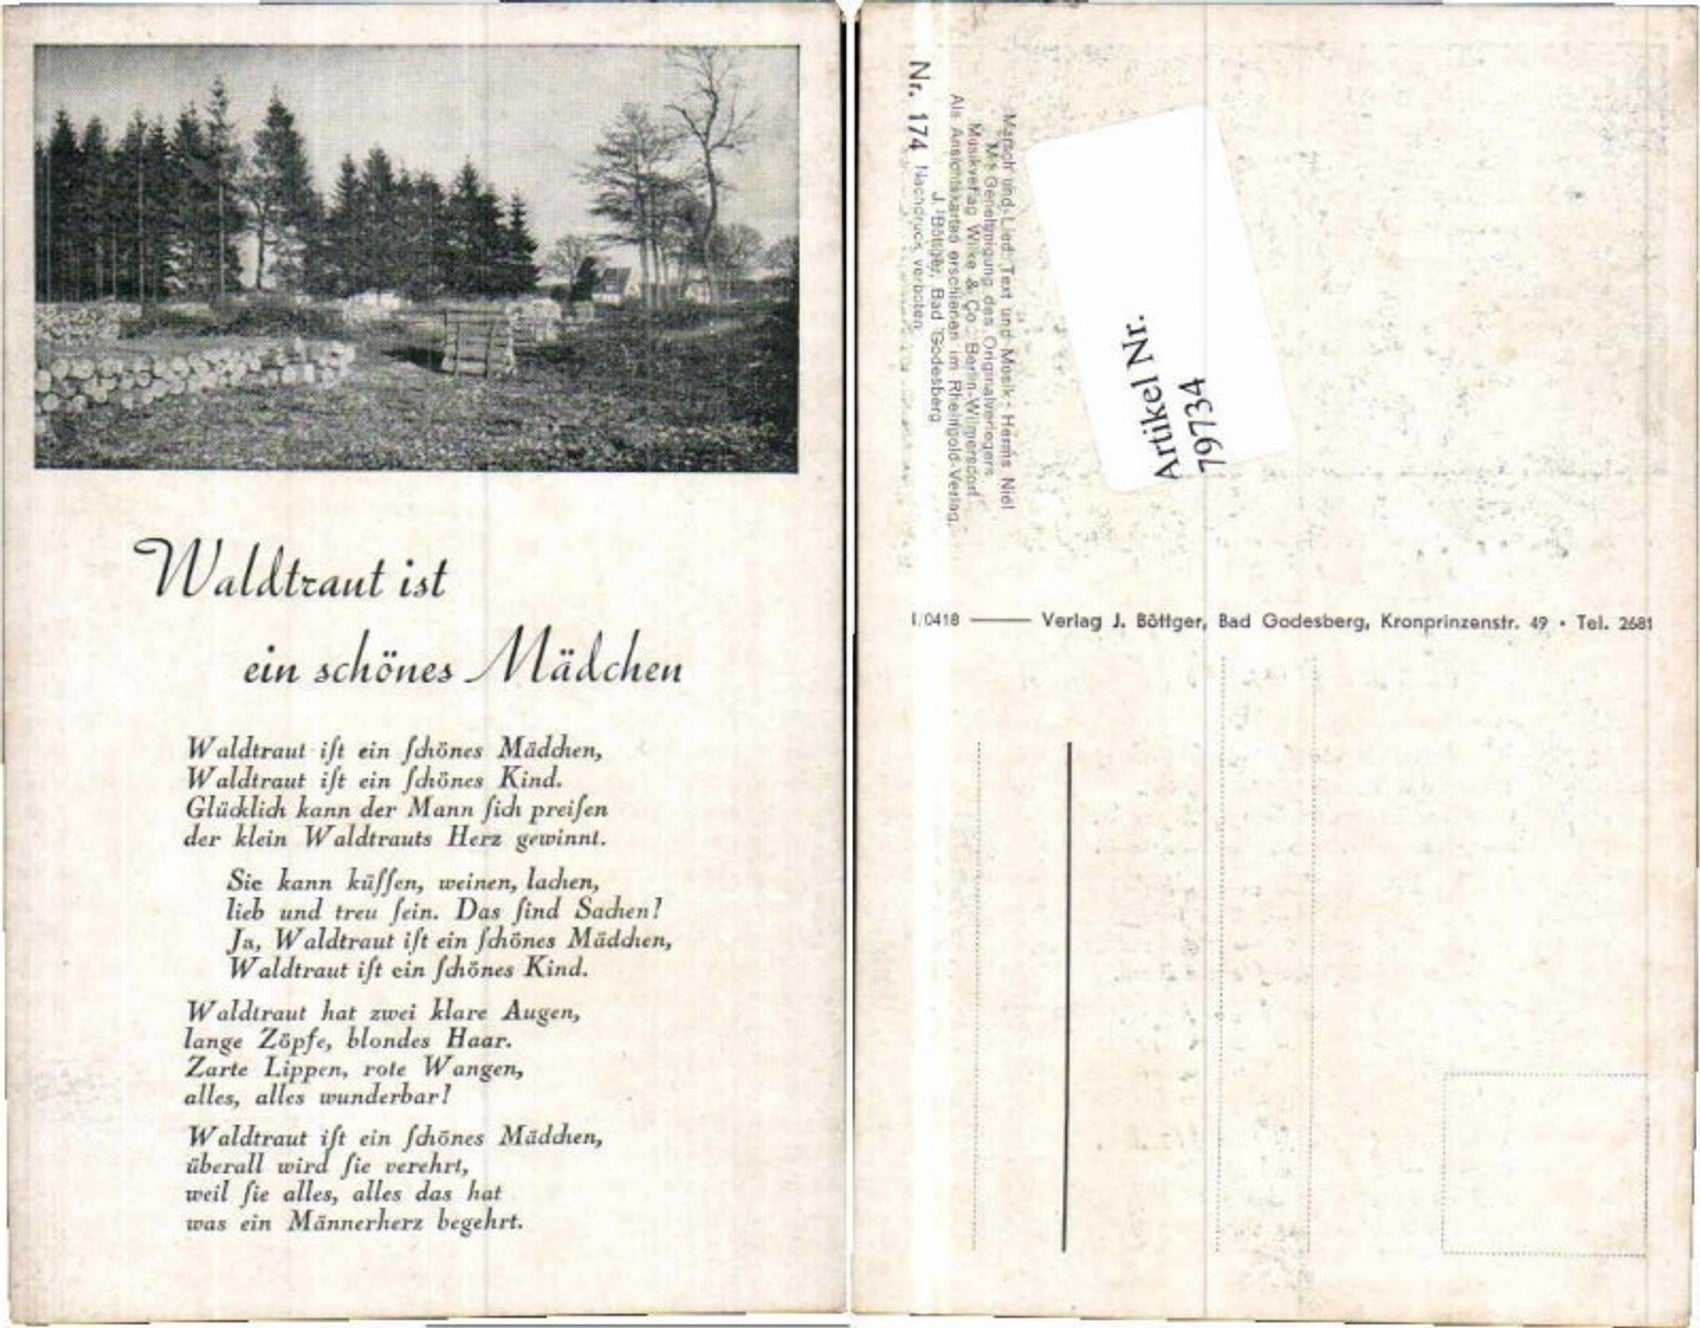 Waldtraut ist
ein schönes Mädchen
Waldtraut iſt ein ſchönes Mädchen,
Waldtraut iſt ein ſchönes Kind.
Glücklich kann der Mann ſich preiſen
der klein Waldtrauts Herz gewinnt.
Sie kann küſſen, weinen, lachen,
lieb und treu ſein. Das ſind Sachen!
Ja, Waldtraut iſt ein ſchönes Mädchen,
Waldtraut iſt ein ſchönes Kind.
Waldtraut hat zwei klare Augen,
lange Zöpfe, blondes Haar.
Zarte Lippen, rote Wangen,
alles, alles wunderbar!
Waldtraut iſt ein ſchönes Mädchen,
überall wird ſie verehrt,
weil ſie alles, alles das hat
was ein Männerherz begehrt.
Marsch und Lied: Text und Musik: Herms Niel
Mit Genehmigung des Originalverlegers
Musikverlag Wilke & Co., Berlin-Wilmersdorf
Als Ansichtskarten erschienen im Rheingold-Verlag,
J. Böttger, Bad Godesberg
Nr. 174 Nachdruck verboten
Artikel Nr.
79734
I/0418 Verlag J. Böttger, Bad Godesberg, Kronprinzenstr. 49 • Tel. 2681